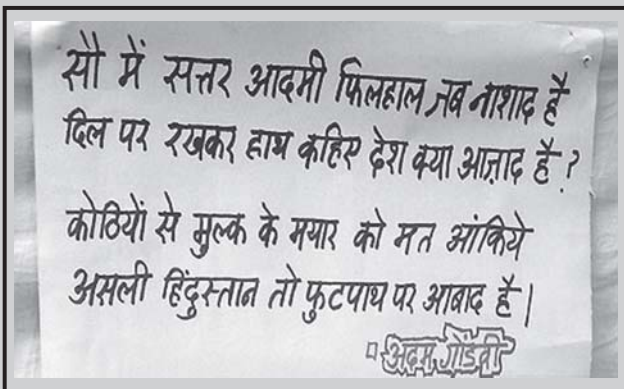 सौ में सत्तर आदमी फिलहाल जब नाशाद है
दिल पर रखकर हाथ कहिए देश क्या आज़ाद है ?
कोठियों से मुल्क के मयार को मत आंकिये
असली हिंदुस्तान तो फुटपाथ पर आबाद है।
अदम गोंडवी